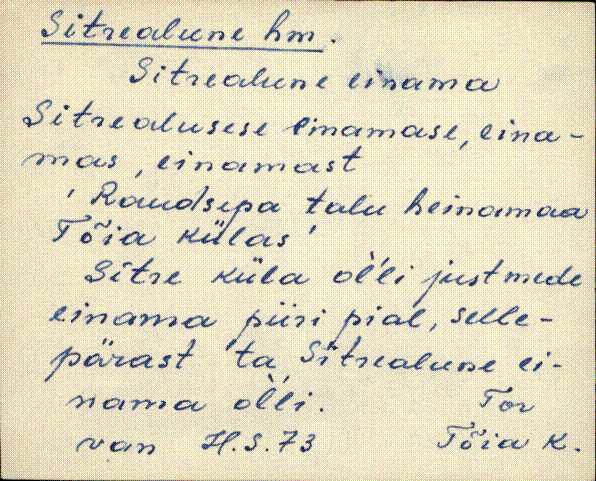 Sitrealune hm.
Sitrealune einama
Sitrealusese einamase, eina-
mas, einamast
'Raudsepa talu heinamaa
Tõia külas'
Sitre küla ol̀li just mede
einama piiri pial, selle-
pärast ta Sitrealune ei-
nama ol̀li. Tor
van H.S.73 Tõia K.